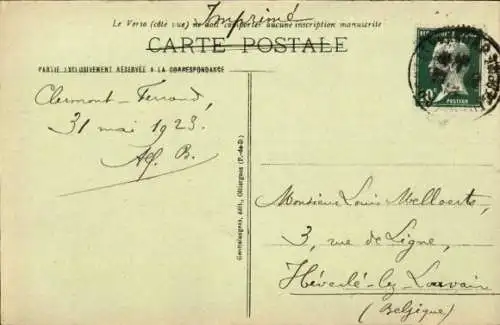 Imprimé
Le Verso (côté vue) ne doit comporter aucune inscription manuscrite
CARTE POSTALE
PARTIE EXCLUSIVEMENT RÉSERVÉE A LA CORRESPONDANCE
Clermont-Ferrand,
31 mai 1923.
Alf. B.
POSTEUR
Monsieur Louis Mellaerts,
3, rue de Ligne,
Héverlé-lez-Louvain
(Belgique)